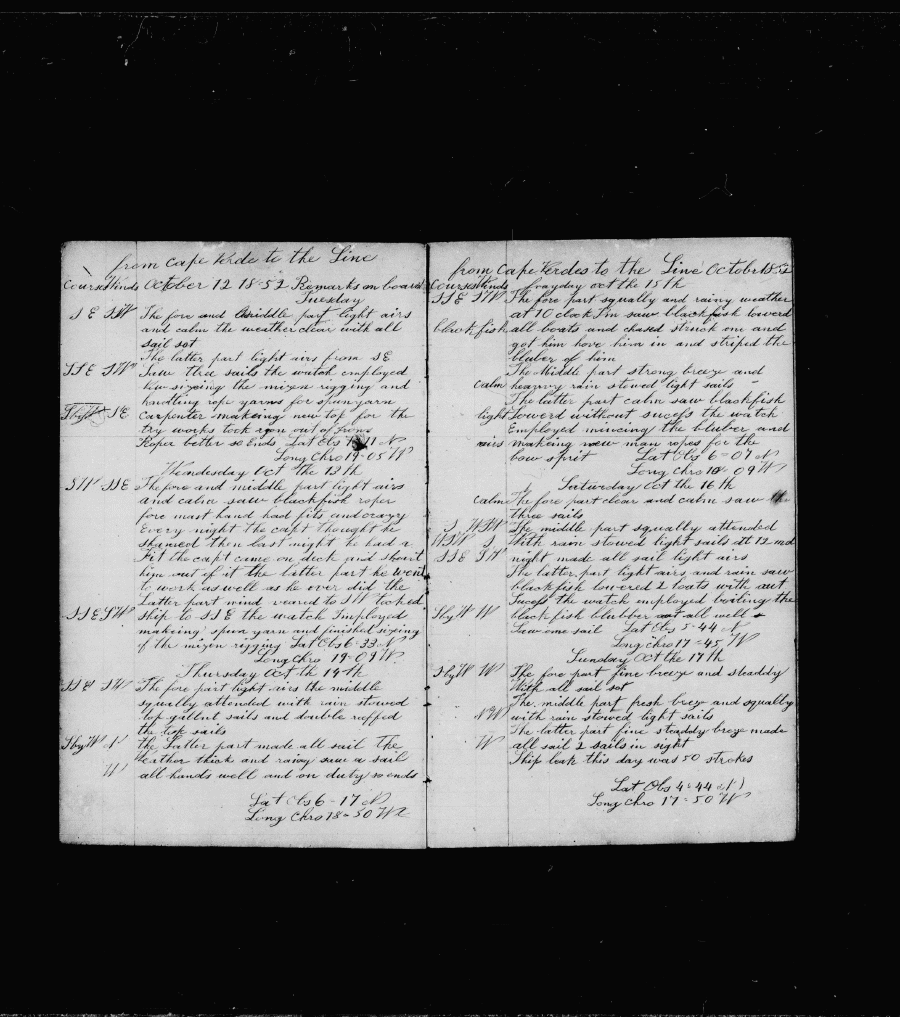 from Cape Verde to the Line
Courses Winds October 12 1852 Remarks on board
Tuesday
S E SW The fore and middle part light airs
and calm the weather clear with all
sail sot
The latter part light airs from SE
SSE SW Saw three sails the watch employed
sizeing the mizen rigging and
handling rope yarns for spunyarn
SE Carpenter makeing new top for the
try works took out of
Roper better so Ends Lat Obs 11 N
Long Chro 19-05 W
Wendesday Oct the 13th
SW SSE The fore and middle part light airs
and calm saw blackfish roper
fore mast hand had fits and crazy
Every night the capt thought he
shamed then last night he had a
Fit the capt came on dick and
him out of it the latter part he went
to work as well as he ever did the
Latter part wind veared to SW tacked
SSE SW ship to SSE the watch Imployed
makeing spun yarn and finished sizeing
of the mizen rigging Lat Obs 6-33 N
Long Chro 19-09 W
Thursday Oct th 14th
SSE SW The fore part light airs the middle
squally attended with rain stowed
top gallnt sails and double raffed
the top sails
SbyW N the Latter part made all sail the
weather thick and rainy saw a sail
W all hands well and on duty so ends
Lat Obs 6-17 N
Long Chro 18-50 W
from Cape Verdes to the Line October 1852
Courses Winds frayday oct the 15th
SSE SW The fore part squally and rainy weather
at 10 clock PM saw blackfish lowerd
blackfish all boats and chased struck one and
got him hove him in and striped the
bluber of him
The Middle part strong breze and
Calm hearvy rain stowed light sails
The latter part calm saw blackfish
light Lowerd without sucefs the watch
Employed mincing the bluber and
airs makeing new man ropes for the
bow sprit Lat Obs 6-07 N
Long Chro 18-09 W
Saturday Oct the 16th
Calm The fore part clear and calm saw
three sails
S WSW The middle part squally attended
WSW S With rain stowed light sails at 12 md
SSE SW night made all sail light airs
The latter part light airs and rain saw
blackfish lowered 2 boats with out
Sucefs the watch employed boiling the
SbyW W black fish blubber all well
Saw one sail Lat Obs 5-44 N
Long Chro 17-45 W
Sunsday Oct the 17th
SbyW W The fore part fine breze and steaddy
With all sail sot
The middle part fresh brezy and squally
NW with rain stowed light sails
The latter part fine steaddy breze made
W all sail 2 sails in sight
Ship leek this day was 50 strokes
Lat Obs 4-44 N
Long Chro 17-50 W